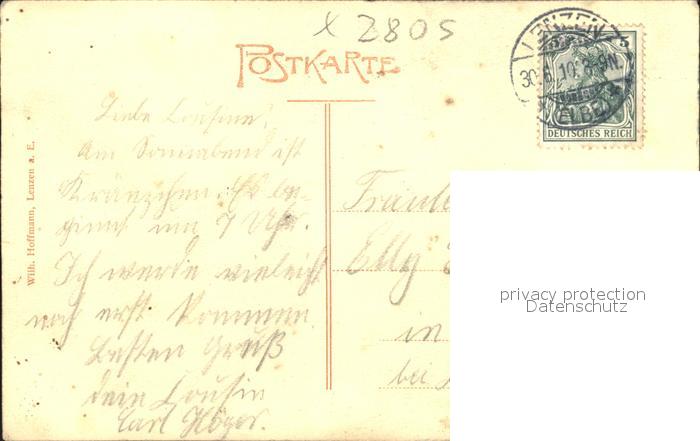 x 2805
POSTKARTE
LENZEN
30.6.10. 8-9N.
(ELBE)
5
DEUTSCHES REICH
Wilh. Hoffmann, Lenzen a. E.
Liebe Cousine!
Am Sonnabend ist
Kränzchen. Es be-
ginnt um 7 Uhr.
Ich werde vieleicht
noch erst kommen
Besten Gruß
dein Cousin
Carl Höger.
Fräule
Elly
in
bei
privacy protection
Datenschutz